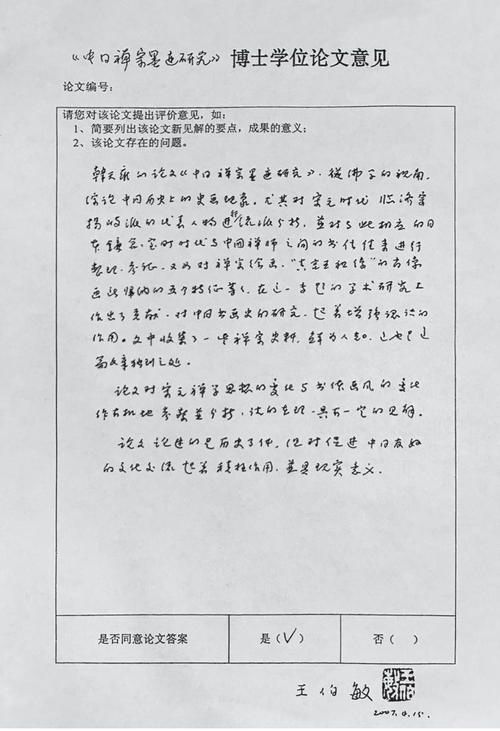 《中日禅宗墨迹研究》 博士学位论文意见
论文编号：
请您对该论文提出评价意见，如：
1、简要列出该论文新见解的要点，成果的意义；
2、该论文存在的问题。
韩天雍的论文《中日禅宗墨迹研究》，从佛学的视角，
综论中日历史上的书画现象。尤其对宋元时代临济宗
杨岐派的代表人物进行流派分析，并对与此相应的日
本镰仓、室町时代与中国禅师之间的书信往来进行
整理、考证。又如对禅宗绘画，“真空妙相”的肖像
画归纳的五个特征等，在这一学科的学术研究上
作出了贡献，对中日书画史的研究，起着增强认识的
作用。文中收集了一些禅宗史料，鲜为人知，这也是这
篇文章独到之处。
论文对宋元禅学思想的变化与书体画风的变化
作有机地参照并分析，说的在理，具有一定的见解。
论文论述的是历史文化，但对促进中日友好
的文化交流起着积极作用，并具现实意义。
是否同意论文答案 是（√） 否（ ）
王伯敏
2007.4.15.